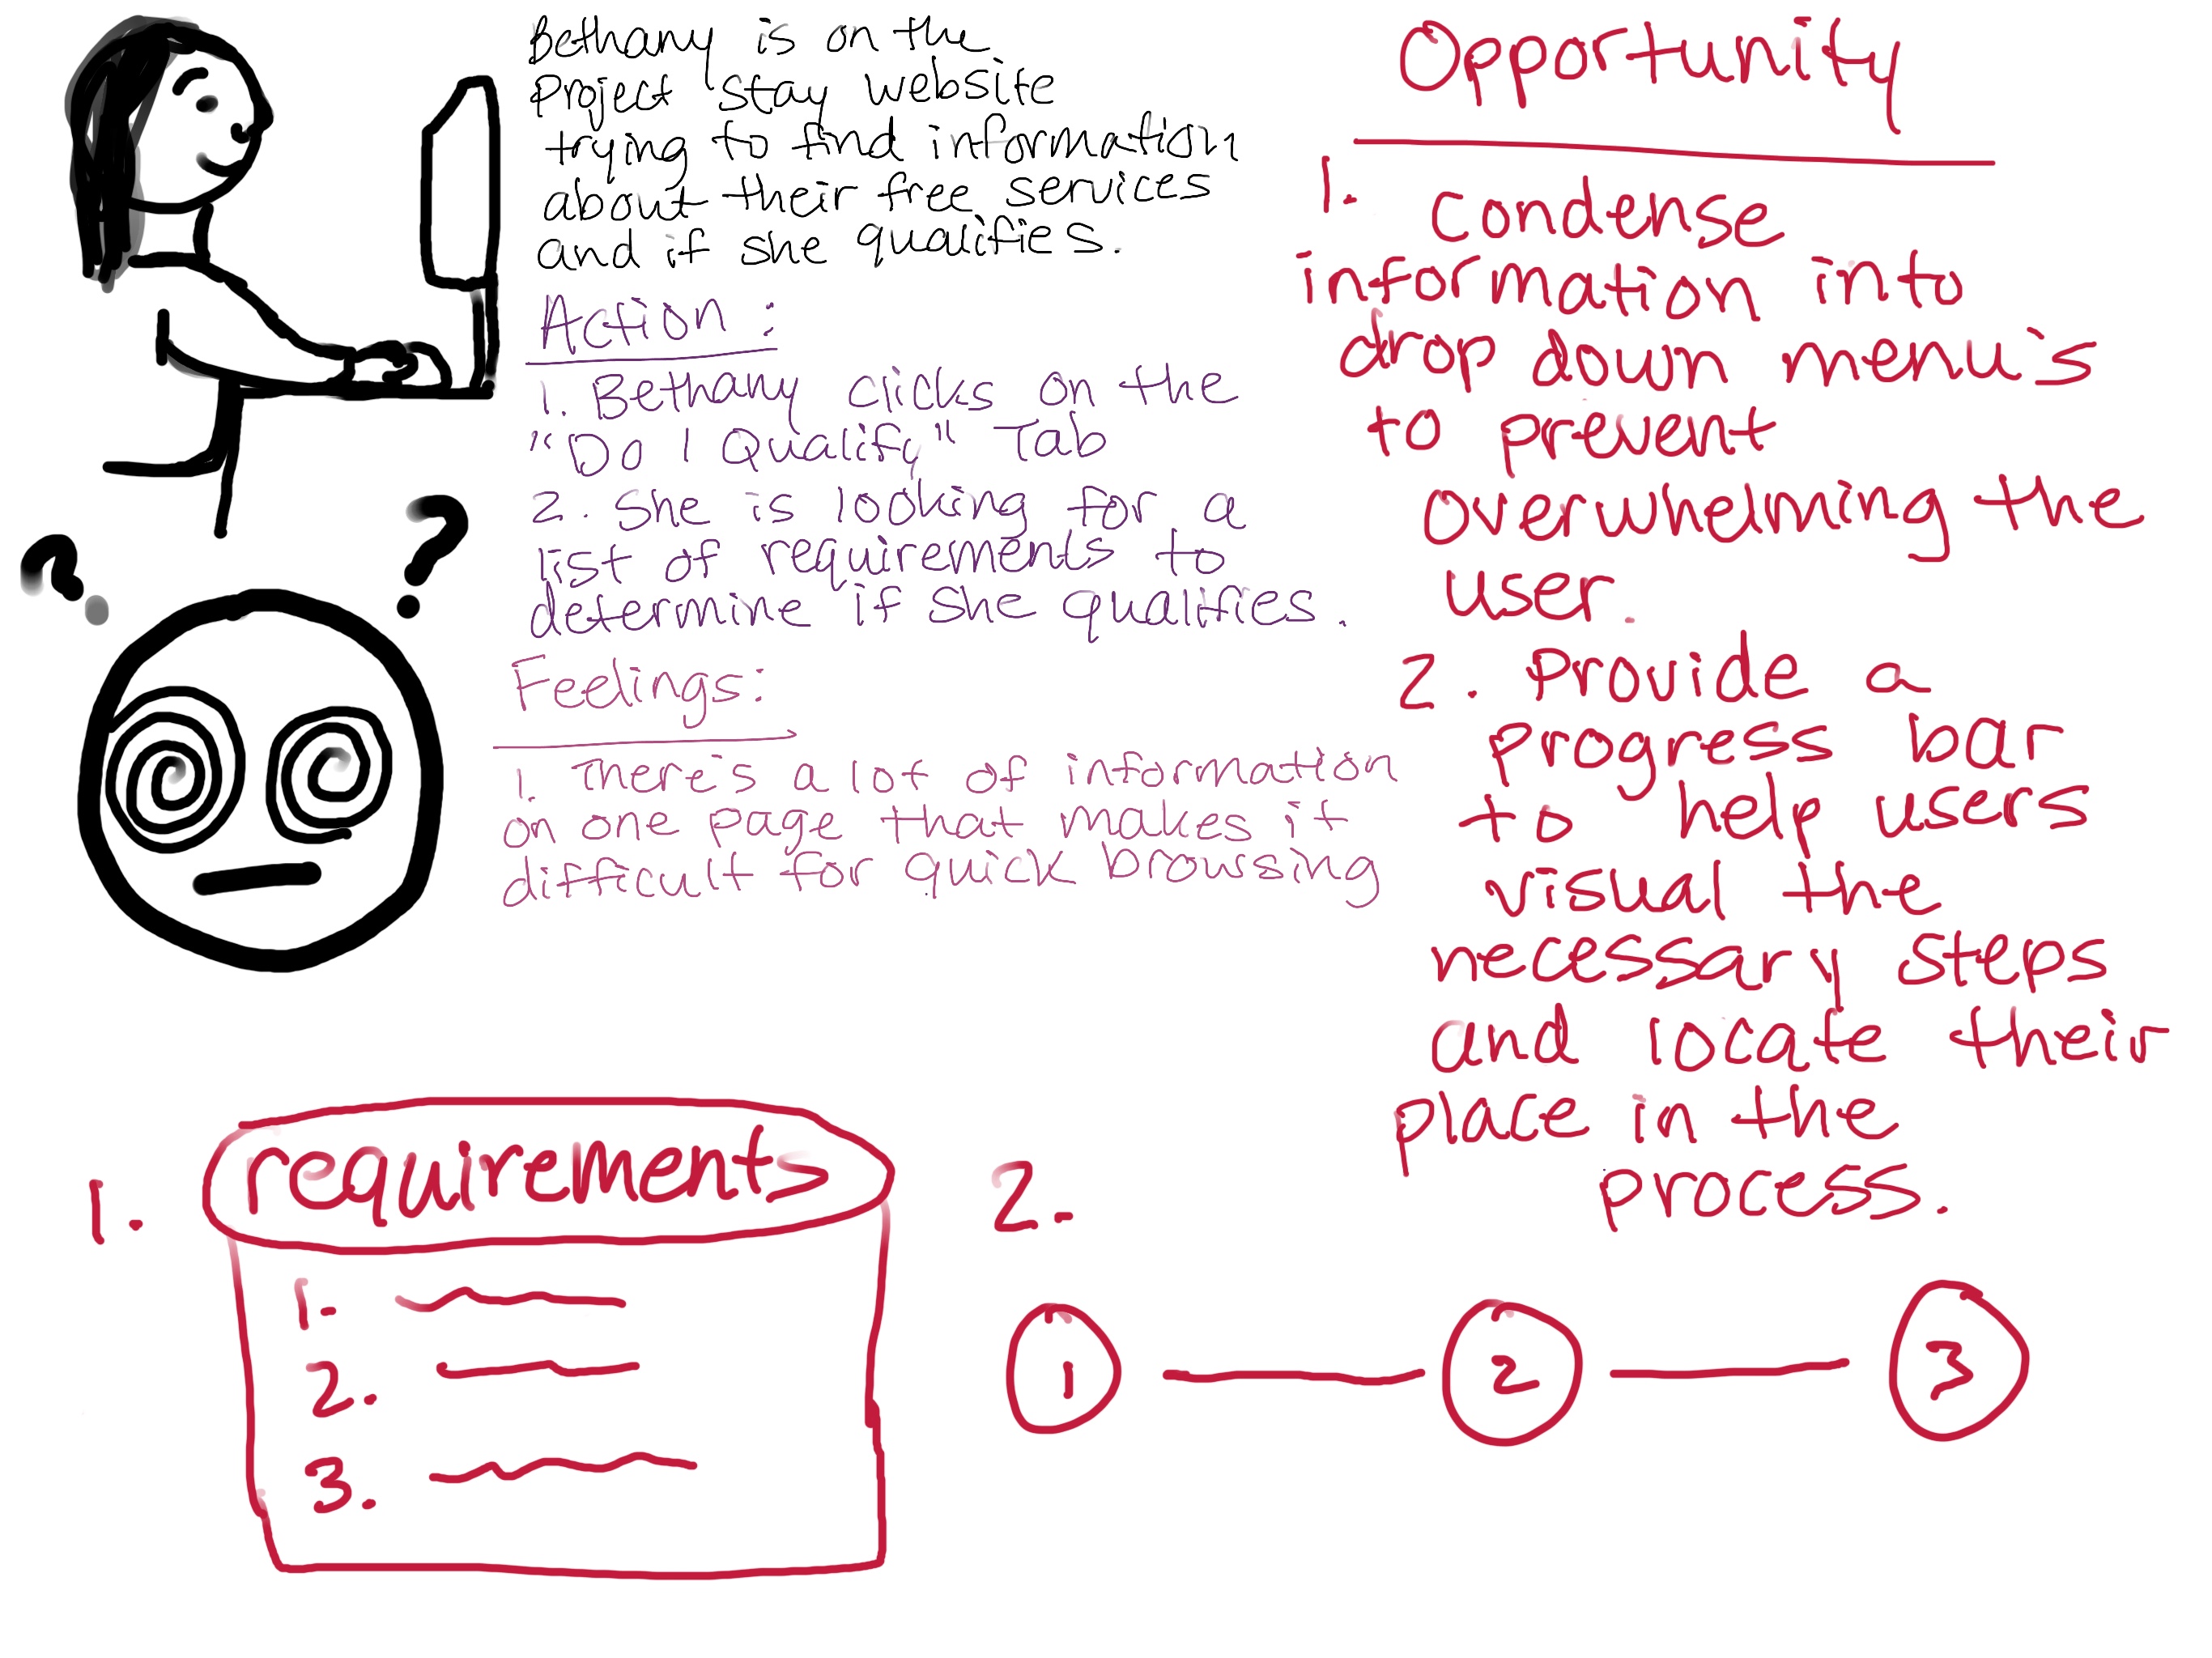 Bethany is on the
project stay website
trying to find information
about their free services
and if she qualifies.
Action:
1. Bethany clicks on the
"Do I Qualify" Tab
2. She is looking for a
list of requirements to
determine if she qualifies.
Feelings:
1. There's a lot of information
on one page that makes it
difficult for quick browsing
Opportunity
1. Condense
information into
drop down menu's
to prevent
overwhelming the
user.
2. Provide a
progress bar
to help users
visual the
necessary steps
and locate their
place in the
process.
? ?
1. requirements
1.
2.
3.
2.
1 2 3